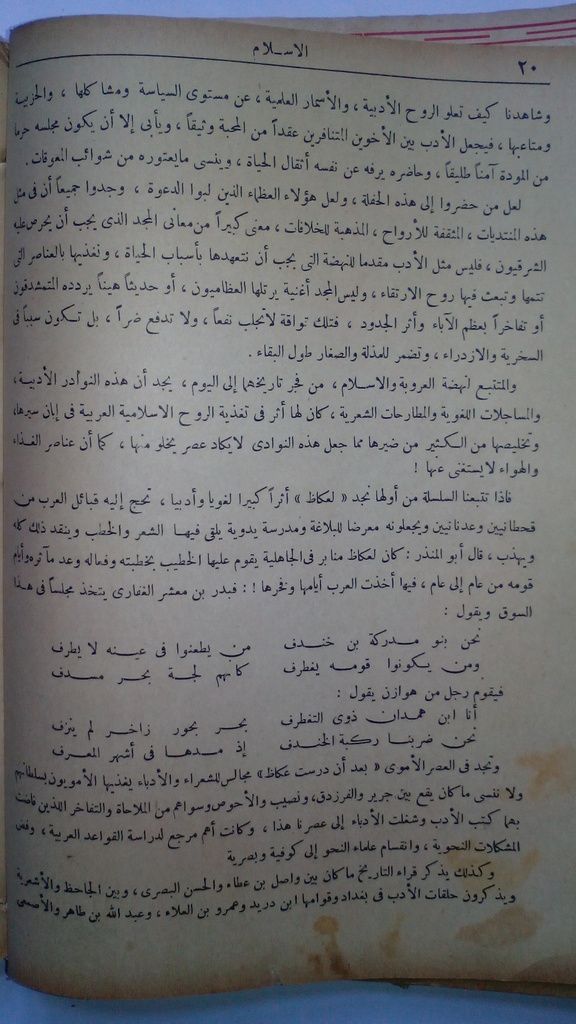 الاسلام
٢٠
وشاهدنا كيف تعلو الروح الأدبية ، والأسمار العلمية ، عن مستوى السياسة ومشاكلها ، والحزبية
ومتاعبها ، فيجعل الأدب بين الأخوين المتنافرين عقداً من المحبة وثيقاً ، ويأبى إلا أن يكون مجلسه حرما
من المودة آمناً طليقاً ، وحاضره يرفه عن نفسه أثقال الحياة ، وينسى مايعتوره من شوائب المعوقات .
لعل من حضروا إلى هذه الحفلة ، ولعل هؤلاء العظماء الذين لبوا الدعوة ، وجدوا جميعاً أن فى مثل
هذه المنتديات ، المثقفة للأرواح ، المذهبة للخلافات ، معنى كبيراً من معانى المجد الذى يجب أن يحرص عليه
الشرقيون ، فليس مثل الأدب مقدما للنهضة التى يجب أن نتعهدها بأسباب الحياة ، ونغذيها بالعناصر التى
تتمها وتبعث فيها روح الارتقاء ، وليس المجد أغنية يرتلها العظاميون ، أو حديثاً هيناً يردده المتمشدقون
أو تفاخراً بعظم الآباء وأثر الجدود ، فتلك تواقة لاتجلب نفعاً ، ولا تدفع ضراً ، بل تكون سبباً فى
السخرية والازدراء ، وتضمر للمذلة والصغار طول البقاء .
والمتتبع لنهضة العروبة والاسلام ، من فجر تاريخهما إلى اليوم ، يجد أن هذه النوادر الأدبية،
والمساجلات اللغوية والمطارحات الشعرية ، كان لها أثر فى تغذية الروح الاسلامية العربية فى إبان سيرها،
وتخليصها من الكثير من ضيرها مما جعل هذه النوادى لايكاد عصر يخلو منها ، كما أن عناصر الغذاء
والهواء لايستغنى عنها !
فاذا تتبعنا السلسلة من أولها نجد « لعكاظ » أثراً كبيرا لغويا وأدبيا ، تحج إليه قبائل العرب من
قحطانيين وعدنانيين ويجعلونه معرضا للبلاغة ومدرسة بدوية يلقى فيها الشعر والخطب وينقد ذلك كله
ويهذب ، قال أبو المنذر : كان لعكاظ منابر فى الجاهلية يقوم عليها الخطيب بخطبته وفعاله وعد مآثره وأيام
قومه من عام إلى عام ، فيها أخذت العرب أيامها وفخرها ! : فبدر بن معشر الغفارى يتخذ مجلساً فى هذا
السوق ويقول :
نحن بنو مدركة بن خندف من يطعنوا فى عينه لا يطرف
ومن يكونوا قومه يغطرف كأنهم لجة بحر مسدف
فيقوم رجل من هوازن يقول :
أنا ابن همدان ذوى التغطرف بحر بحور زاخر لم ينزف
نحن ضربنا ركبة الخندف إذ مدها فى أشهر المعرف
ونجد فى العصر الأموى « بعد أن درست عكاظ » مجالس للشعراء والأدباء يغذيها الأمويون بسلطانهم
ولا ننسى ماكان يقع بين جرير والفرزدق، ونصيب والأحوص وسواهم من الملاحاة والتفاخر اللذين فاضت
بهما كتب الأدب وشغلت الأدباء إلى عصرنا هذا ، وكانت أهم مرجع لدراسة القواعد العربية ، وفض
المشكلات النحوية ، وانقسام علماء النحو إلى كوفية وبصرية
وكذلك يذكر قراء التاريخ ماكان بين واصل بن عطاء والحسن البصرى ، وبين الجاحظ والأشعرية
ويذكرون حلقات الأدب فى بغداد وقوامها ابن دريد وعمرو بن العلاء ، وعبد الله بن طاهر والأصمعى